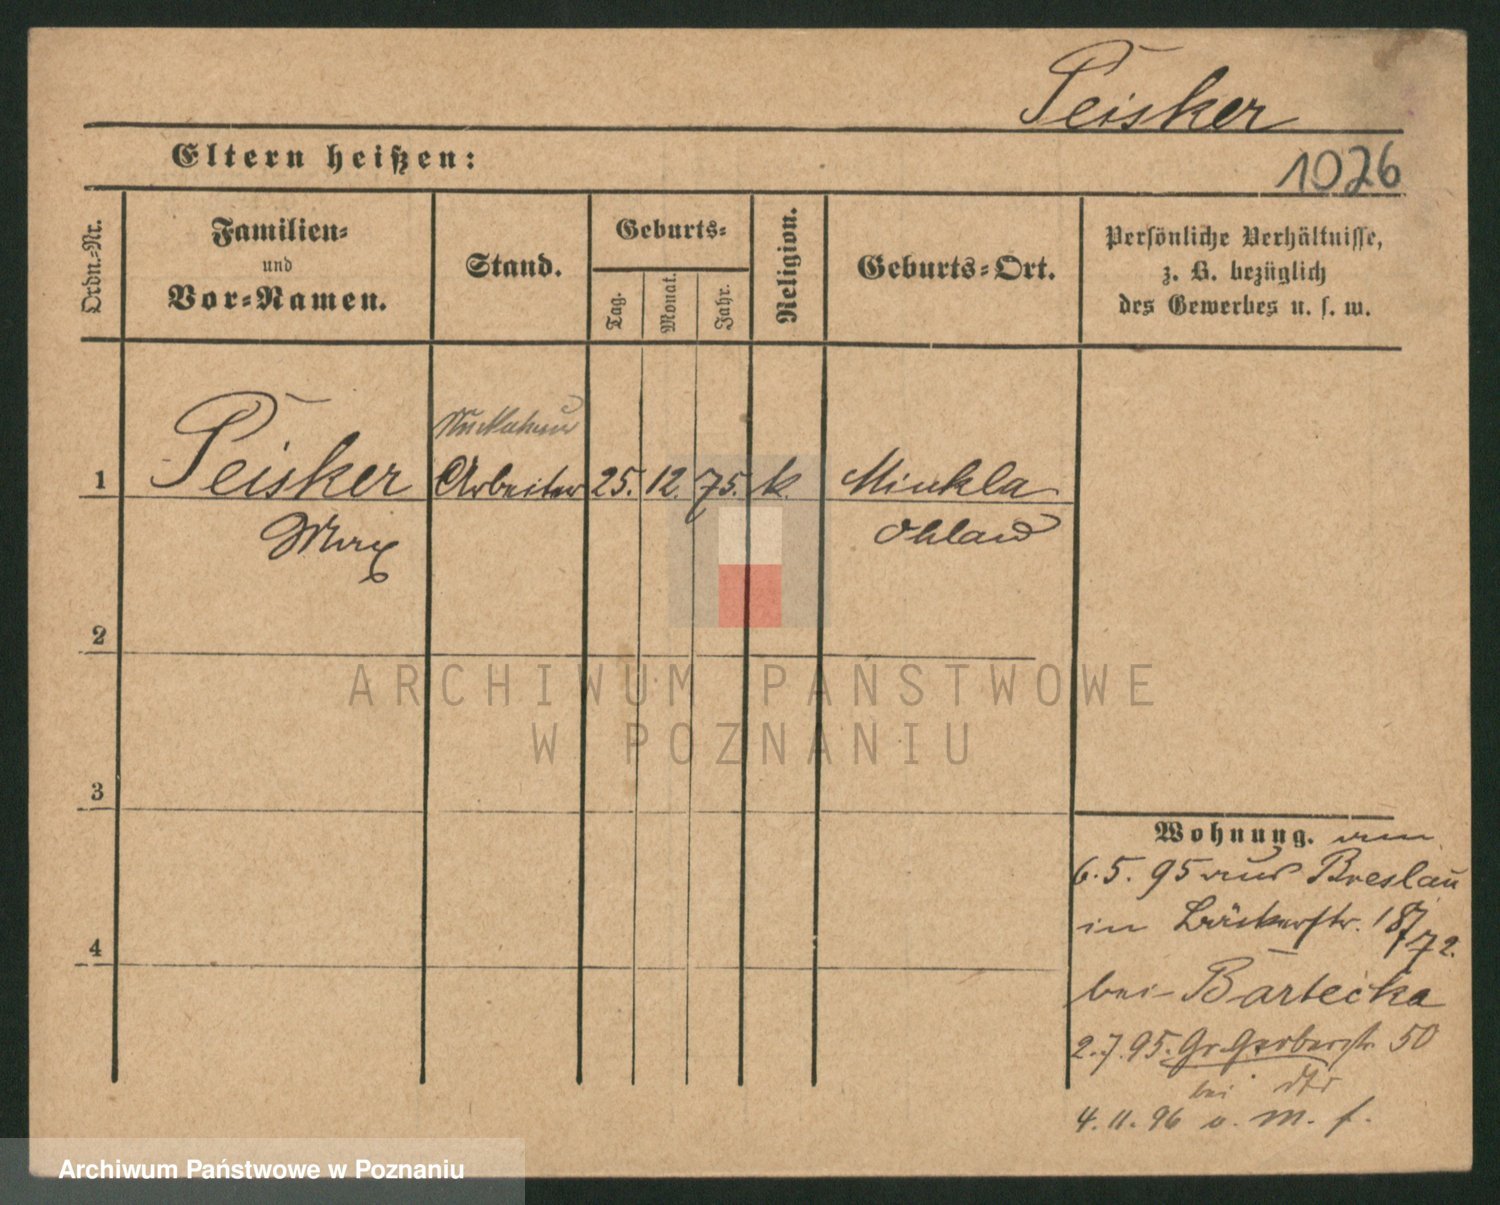 Peisker
Eltern heißen:
1026
Ordn.-Nr.
Familien-
und
Vor-Namen.
Stand.
Geburts-
Tag.
Monat.
Jahr.
Religion.
Geburts-Ort.
Persönliche Verhältnisse,
z. B. bezüglich
des Gewerbes u. s. w.
1 Peisker Arbeiter 25. 12. 75. k. Minkla
Max Ohlau
2
3
4
ARCHIWUM PAŃSTWOWE
W POZNANIU
Wohnung.
6.5.95 aus Breslau
in Bäckerstr. 18/
72.
bei Bartecka
2.7.95. Gr. Gerberstr. 50
bei dto
4.11.96 o. m. f.
Archiwum Państwowe w Poznaniu